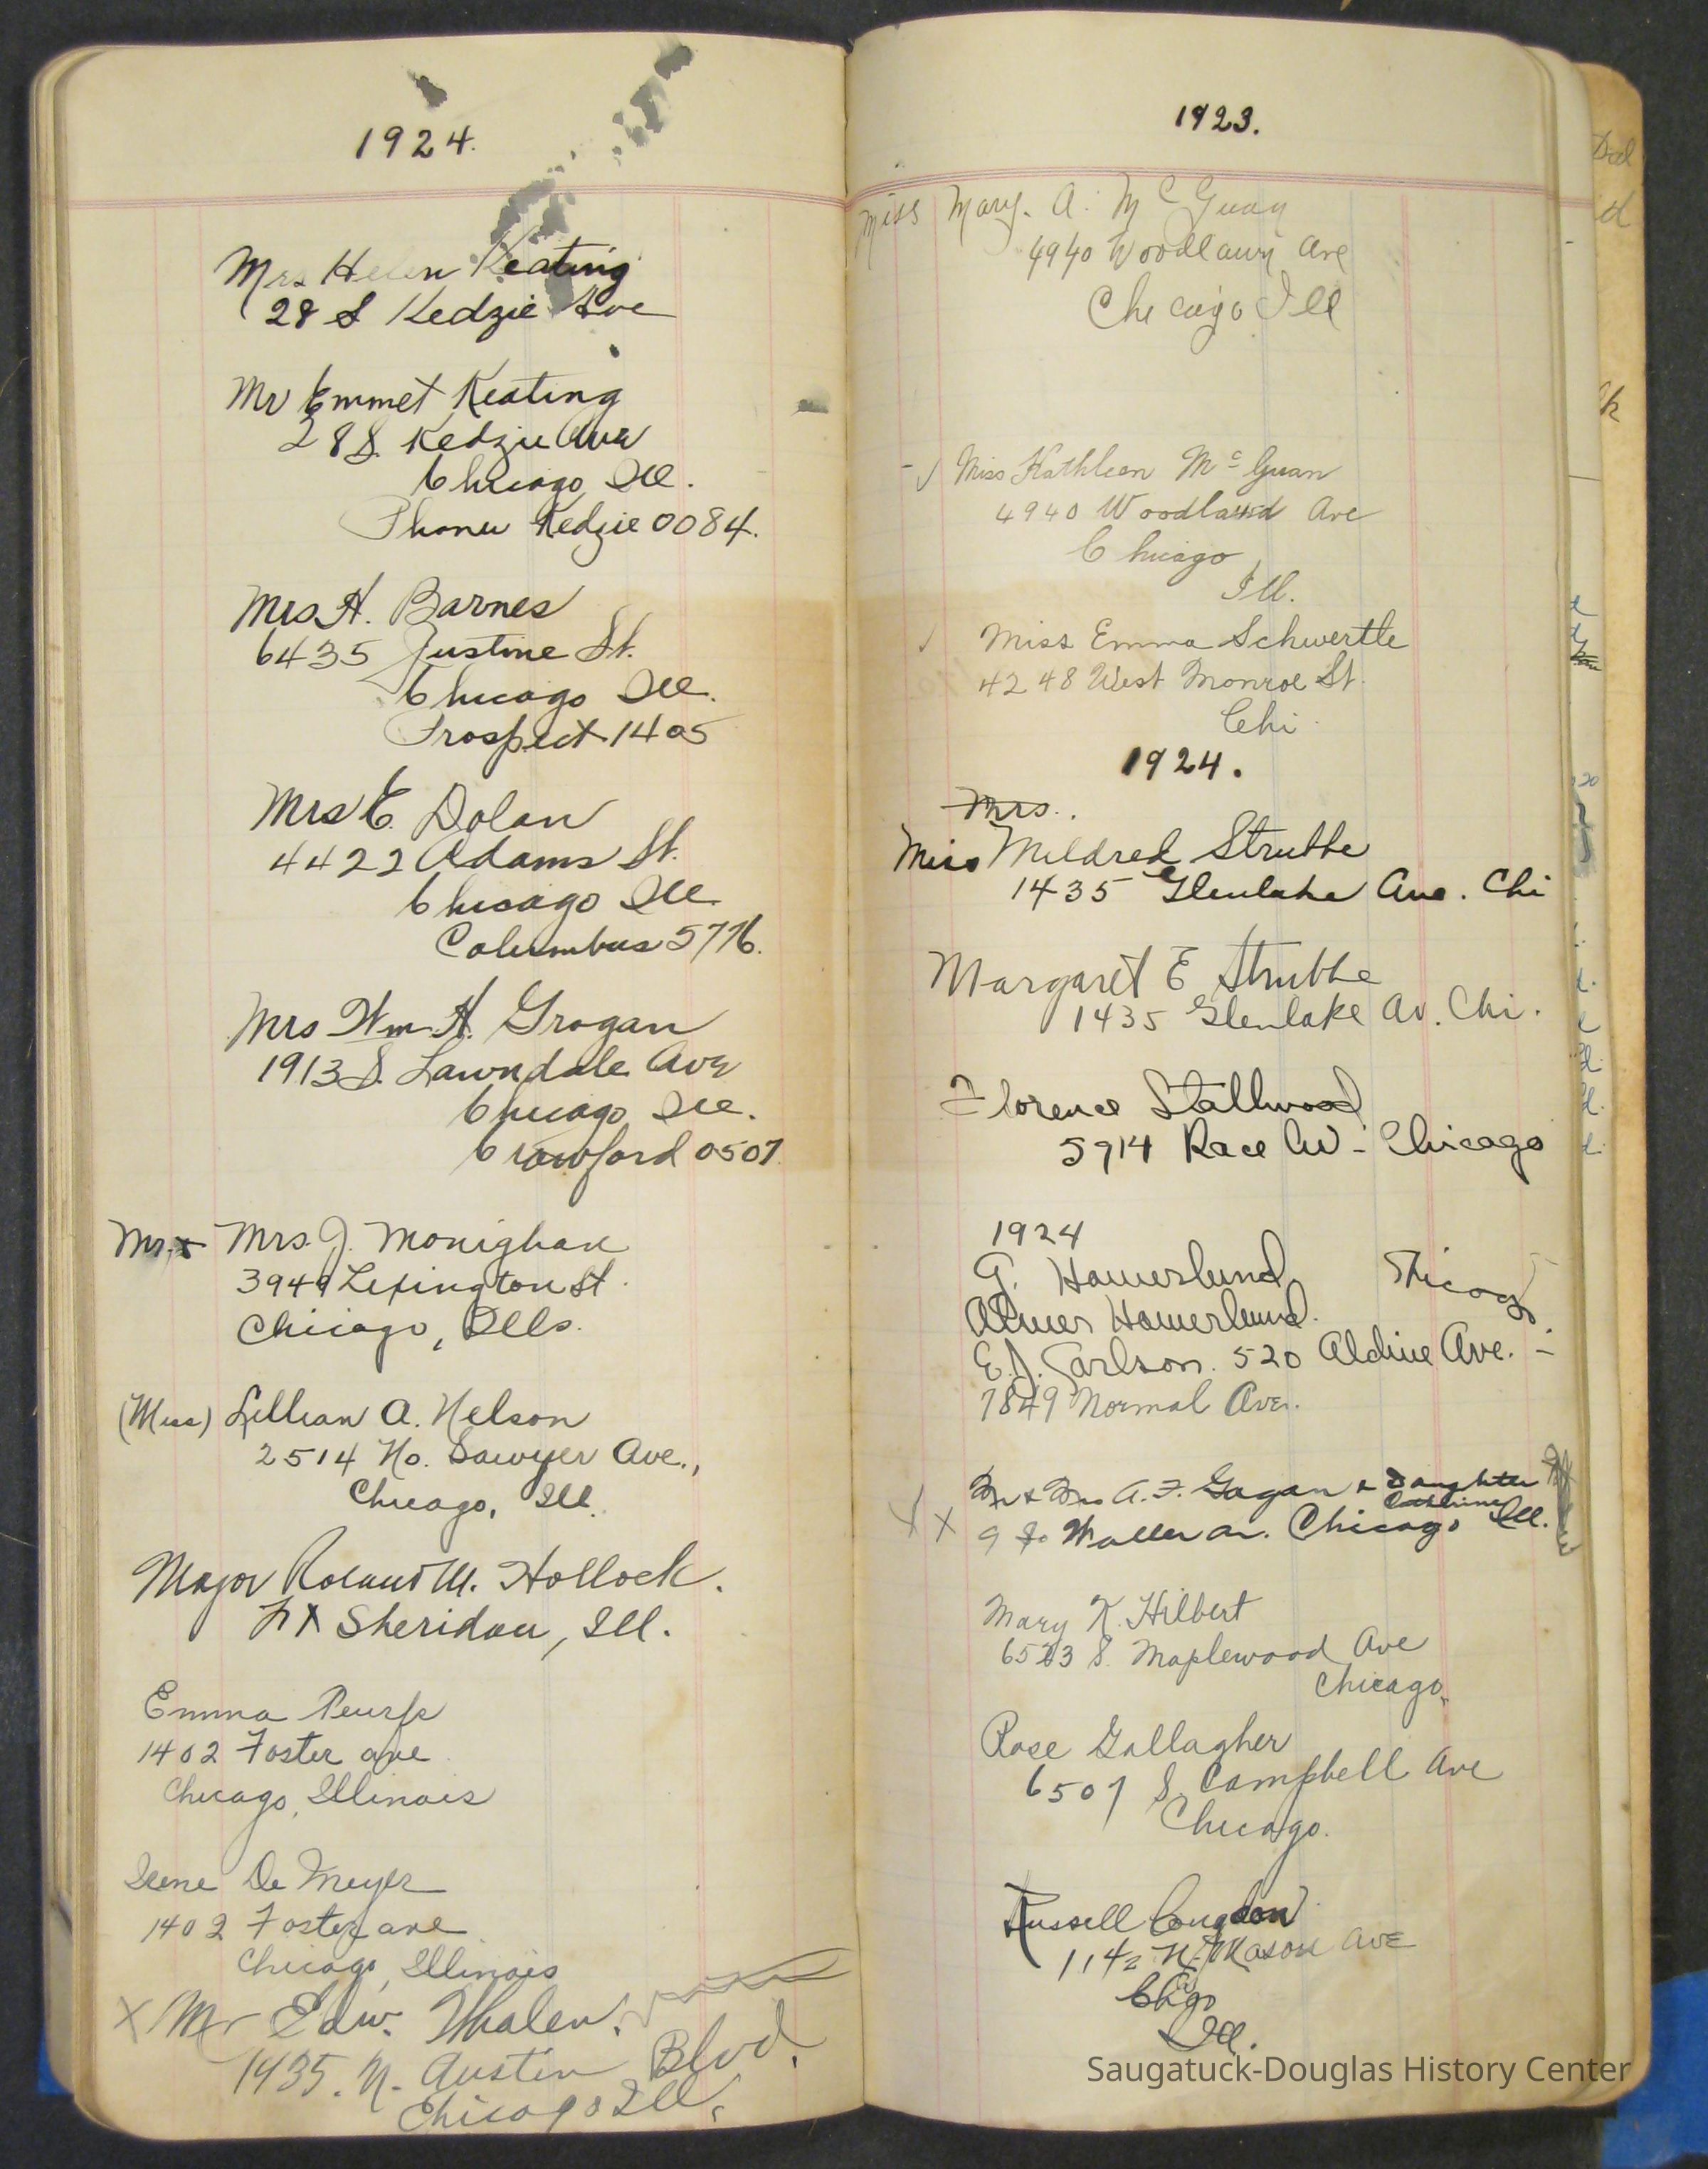 1924.
Mrs Helen Keating
28 S Kedzie Ave
Mr Emmet Keating
28 S. Kedzie Ave
Chicago Ill.
Phone Kedzie 0084.
Mrs H. Barnes
6435 Justine St.
Chicago Ill.
Prospect 1405
Mrs E. Dolan
4422 Adams St.
Chicago Ill
Columbus 5776.
Mrs Wm. H. Grogan
1913 S. Lawndale Ave
Chicago Ill.
Crawford 0507
Mr. + Mrs. J. Monighan
3949 Lexington St.
Chicago, Ills.
(Miss) Lillian A. Nelson
2514 No. Sawyer Ave.,
Chicago, Ill.
Major Roland M. Hollock.
Ft Sheridan, Ill.
Emma
1402 Foster ave
Chicago, Illinois
Irene De Meyer
1402 Foster ave
Chicago, Illinois
X Mr Edw. Whalen.
1435. N. Austin Blvd.
Chicago Ill.
1923.
Miss Mary. A. Mc Guan
4940 Woodlawn Ave
Chicago Ill
Miss Kathleen Mc Guan
4940 Woodlawn Ave
Chicago
Ill.
Miss Emma Schwertle
4248 West Monroe St.
Chi
1924.
Mrs.
Miss Mildred Strubbe
1435 Glenlake Ave. Chi
Margaret E Strubbe
1435 Glenlake Av. Chi.
Florence Stallwood
5914 Race Av - Chicago
1924
G. Hamerlund
Hamerlund.
E. J. Carlson. 520 Aldine Ave. -
7849 Normal Ave.
Mr + Mrs A. F. Gagan + Daughter
Catherine
X 9 So Waller av. Chicago Ill.
Mary K. Hilbert
6523 S. Maplewood Ave
Chicago.
Rose Gallagher
6507 S. Campbell Ave
Chicago.
Russell Congdon
1142 N. Mason Ave
Chgo
Ill.
Saugatuck-Douglas History Center